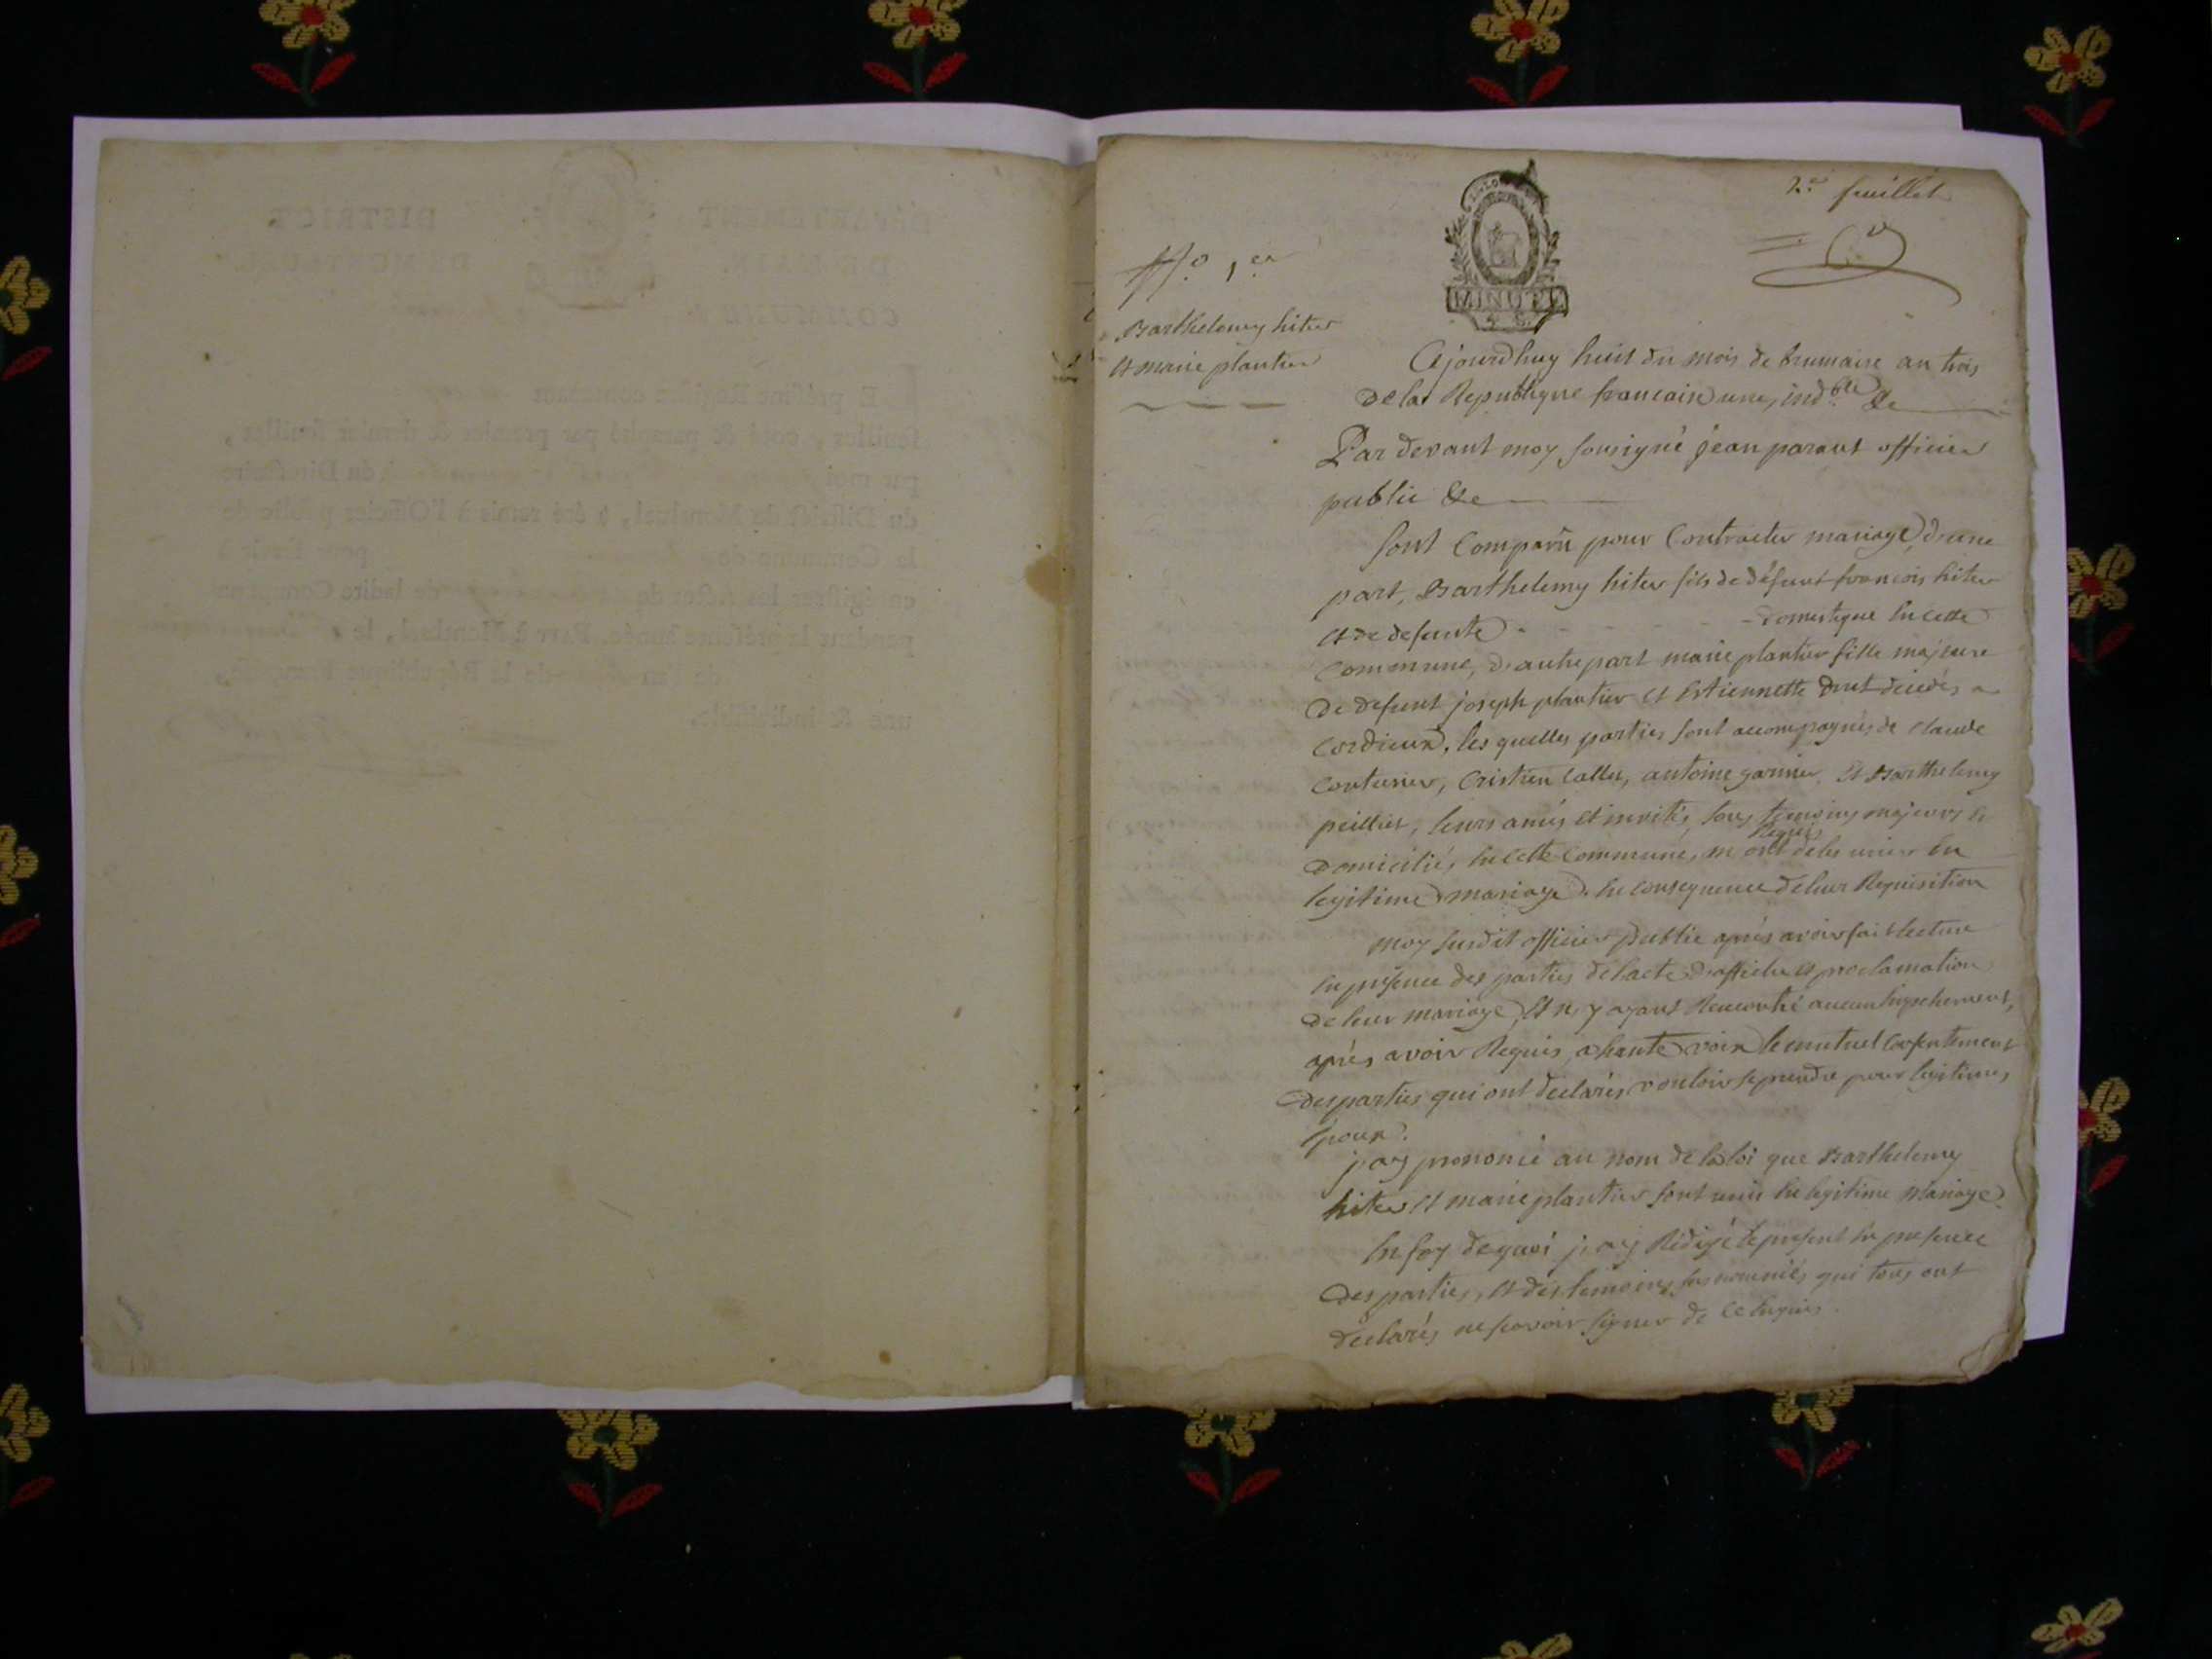 2.e feuillet
N.o 1.er
MINUTE
4 S.
Barthelemy hiter
et marie plantier
Ajourdhuy huit du mois de brumaire an trois
de la Republique francaise une, ind.ble &c
Par devant moy sousigné jean parant officier
public &c
sont comparu pour contracter mariage, d'une
part, Barthelemy hiter fils de défunt francois hiter
et de defunte - - - - - domestique en cette
commune, d'autre part marie plantier fille majeure
de defunt joseph plantier et Estiennette drut décédés a
cordieux, les quelles parties sont accompagnés de Claude
couturier, Cristien callet, antoine garnier et Barthelemy
peillet, leurs amis et invités, tous temoins majeurs &
Requis
domiciliés en cette commune, m'ont de les unir en
legitime mariage. en consequence de leur Requisition
moy susdit officier public après avoir fait lecture
en presence des parties de l'acte d'affiche et proclamation
de leur mariage, et n'y ayant Rencontré aucun Enpechement,
après avoir Requis a haute voix le mutuel consentement
des parties qui ont declarés vouloir se prendre pour legitimes
Epoux.
j'ay prononcé au nom de la loi que Barthelemy
hiter et marie plantier sont unis en legitime Mariage
En foy de quoi j'ay Rédigé le present en presence
des parties, et des temoins sus nommés qui tous ont
declarés ne scavoir signer de ce Enquis.
DÉPARTEMENT DISTRICT
DE L'AIN. DE MONTLUEL.
COMMUNE de
LE présent Registre contenant
feuilles, coté & paraphé par premier & dernier feuillet,
par moi du Directoire
du District de Montluel, a été remis à l'Officier public de
la Commune de pour servir à
enrégistrer les Actes de de ladite Commune
pendant la présente année. FAIT à Montluel, le
de l'an de la République Françoise,
une & indivisible.